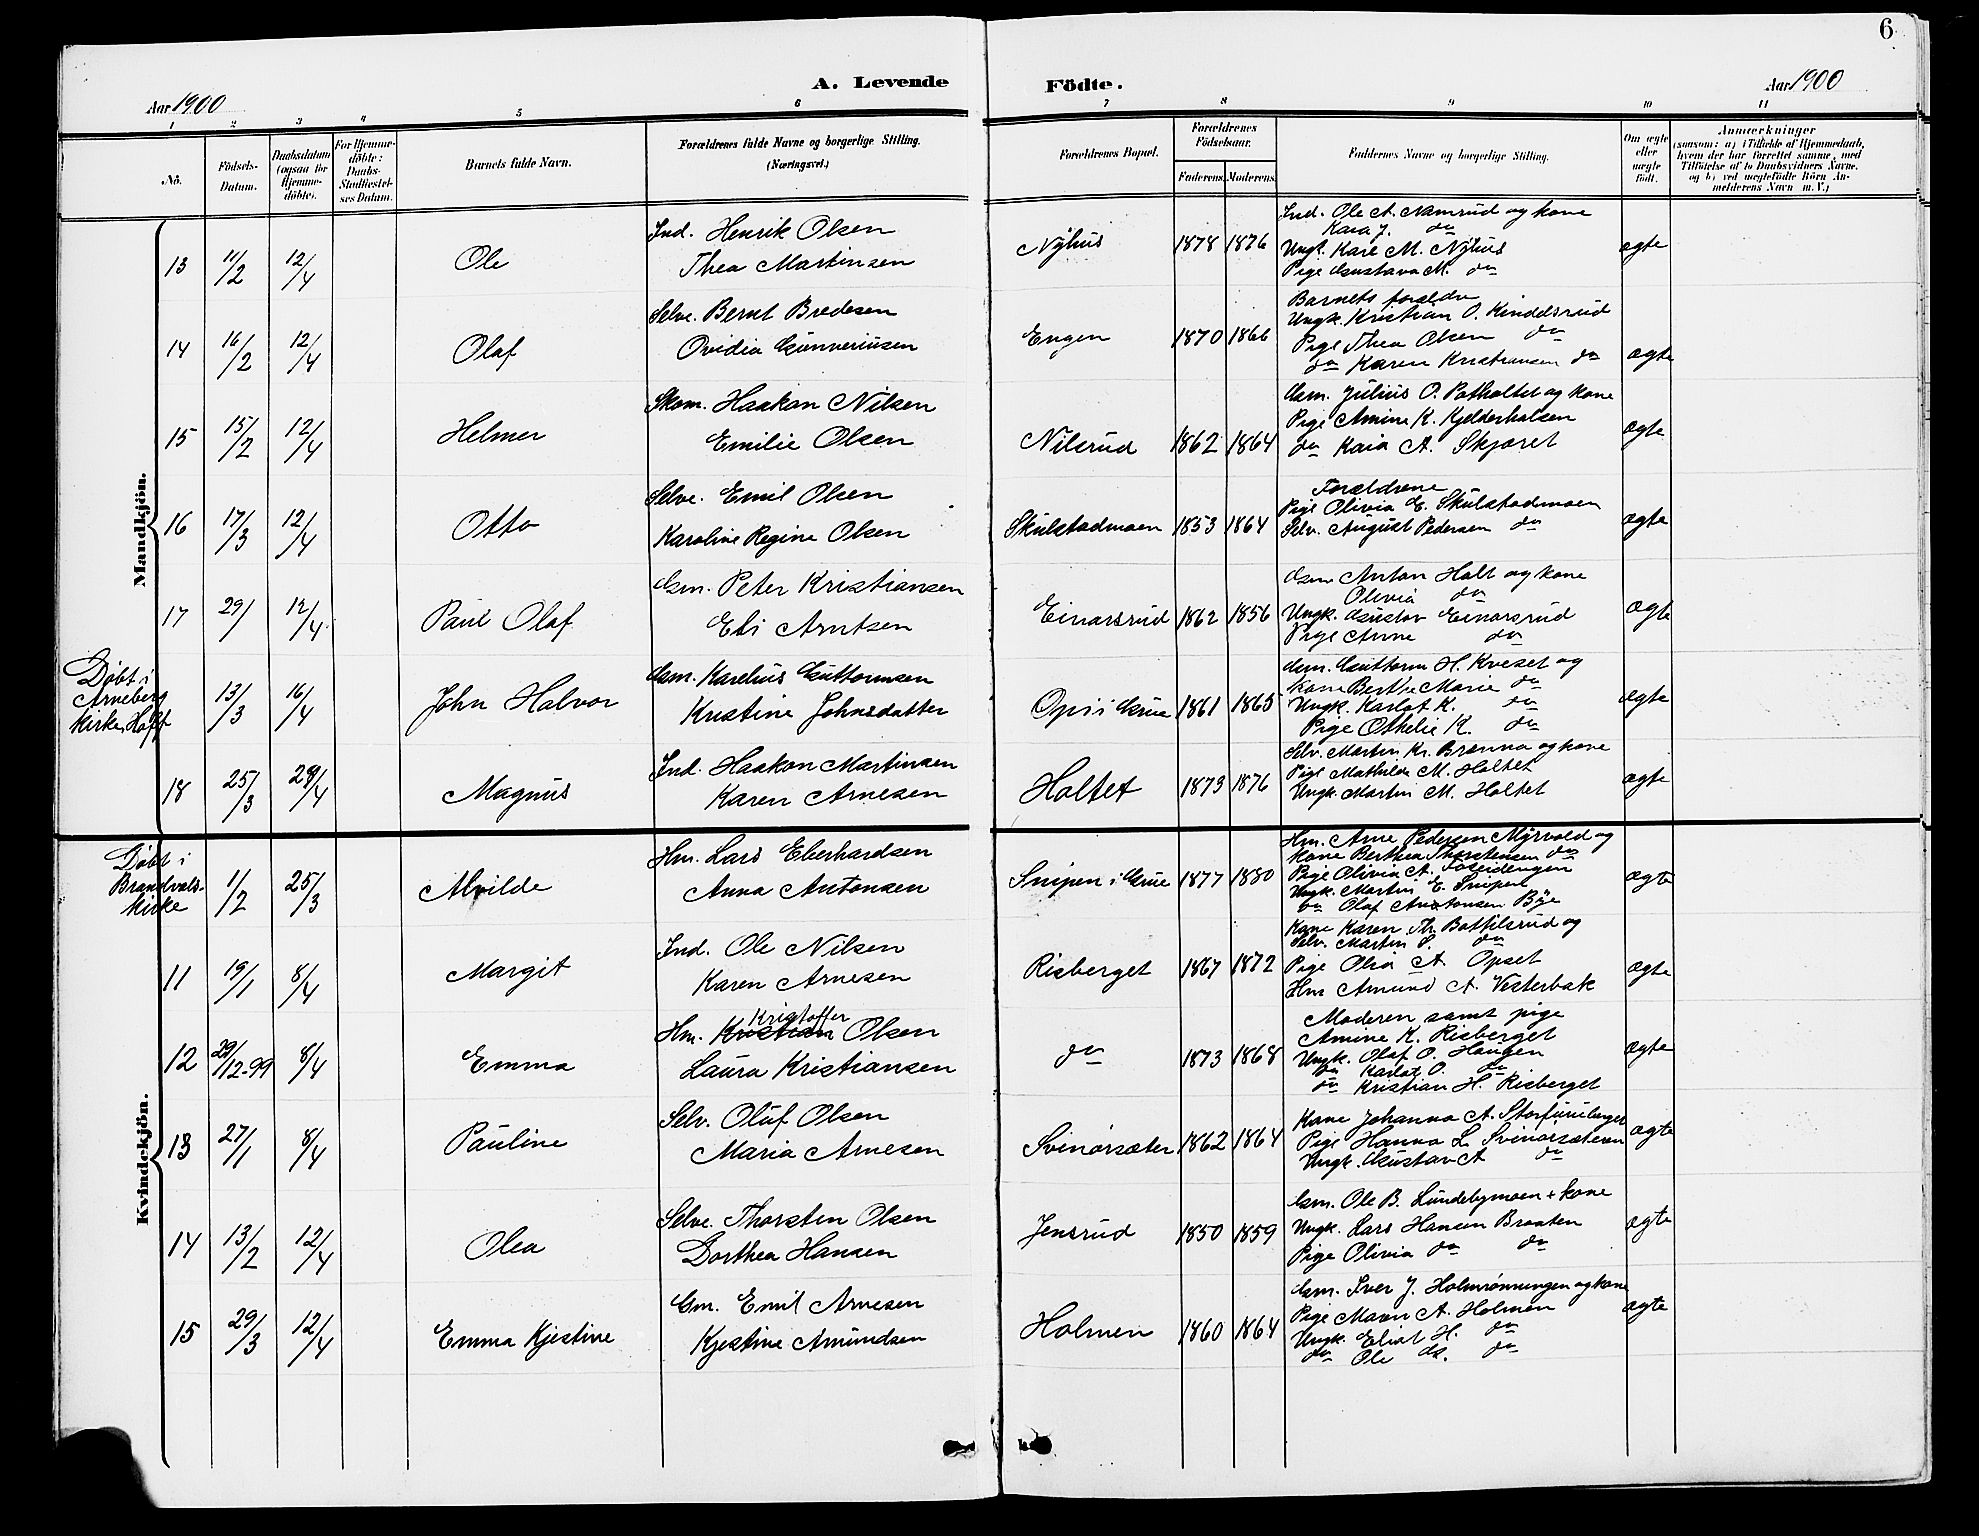 6
A. Levende Födte.
Aar 1900
Aar 1900
1 2 3 4 5 6 7 8 9 10 11
Nö.
Födsels-Datum.
Daabsdatum (ogsaa for Hjemmedöbte).
For Hjemmedöbte: Daabs-Stadfæstelses Datum.
Barnets fulde Navn.
Forældrenes fulde Navne og borgerlige Stilling. (Næringsvei.)
Forældrenes Bopæl.
Forældrenes Födselsaar.
Faderens. Moderens.
Faddernes Navne og borgerlige Stilling.
Om ægte eller uægte födt.
Anmærkninger
(saasom: a) i Tilfælde af Hjemmedaab, hvem der har forrettet samme, med Tilföielse af to Daabsvidners Navne, og b) ved uægtefödte Börn Anmelderens Navn m. V.)
Mandkjön.
13 11/2 12/4 Ole
Ind. Henrik Olsen
Thea Martinsen
Nÿhus 1878 1876
Ind. Ole A. Namrud og kone
Kara J. do
Ungk. Kare M. Nÿhus
Pige Gustava M. do
ægte
14 16/2 12/4 Olaf
Selve. Bernt Bredesen
Ovidia Gunneriusen
Engen 1870 1866
Barnets forældre
Ungk. Kristian O. Kindelsrud
Pige Thea Olsen do
do Karen Kristiansen do
ægte
15 15/2 12/4 Helmer
Skom. Haakon Nilsen
Emilie Olsen
Nilsrud 1862 1864
Gsm. Julius O. Potholtet og kone
Pige Amine K. Kjelderhalsen
do Kaia A. Skjæret
ægte
16 17/3 12/4 Otto
Selve. Emil Olsen
Karoline Regine Olsen
Skulstadmoen 1853 1864
Forældrene
Pige Olivia E. Skulstadmoen
Selv. August Pedersen do
ægte
17 29/ 12/4 Paul Olaf
Gsm. Peter Kristiansen
Eli Arntsen
Einarsrud 1862 1856
Gsm Anton Holt og kone
Olivia do
Ungk. Gustav Einarsrud
Pige Anne do
ægte
Döbt i Arneberg kirke, Hoff
13/3 16/4 John Halvor
Gsm. Karelius Guttormsen
Kristine Johnsdatter
Opsi i Grue 1861 1865
Gsm. Guttorm H. Kveset og
kone Berthe Marie do
Ungk. Karlot K. do
Pige Othelie K. do
ægte
18 25/3 29/4 Magnus
Ind. Haakon Martinsen
Karen Arnesen
Holtet 1873 1876
Selv. Martin Kr. Brænna og kone
Pige Mathilde M. Holtet
Ungk. Martin M. Holtet
ægte
Kvindekjön.
Döbt i Brandvalskirke
1/2 25/3 Alvilde
Hm. Lars Eberhardsen
Anna Antonsen
Snipen i Grue 1877 1880
Hm. Arne Pedersen Mÿrvold og
kone Berthea Thorstensen do
Pige Olivia A.
Ungk. Martin E. Snipen
do Olaf Antonsen Bÿe
ægte
11 19/1 8/4 Margit
Ind. Ole Nilsen
Karen Arnesen
Risberget 1867 1872
Kone Karen Th. Bottilsrud og
Selv. Martin S. do
Pige Olia A. Opset
Hm Amund A. Vesterbak
ægte
12 29/12-99 8/4 Emma
Kristoffer
Hm. Kristian Olsen
Laura Kristiansen
do 1873 1868
Moderen samt pige
Amine K. Risberget
Ungk. Olaf O. Haugen
do Karlot O. do
do Kristian H. Risberget
ægte
13 27/1 8/4 Pauline
Selv. Oluf Olsen
Maria Arnesen
Svinörsæter 1862 1864
Kone Johanna A. Storfuruberget
Pige Hanna L. Svinörsæteren
Ungk. Gustav A do
ægte
14 13/2 12/4 Olea
Selve. Thorsten Olsen
Dorthea Hansen
Jensrud 1850 1859
Gsm. Ole B. Lundebymoen + kone
Ungk. Lars Hansen Braaten
Pige Olivia do do
ægte
15 29/3 12/4 Emma Kjestine
Gm. Emil Arnesen
Kjestine Amundsen
Holmen 1860 1864
Gsm. Iver J. Holmrönningen og kone
Pige Maren A. Holmen
Ungk. Eliot H. do
do Ole do
ægte